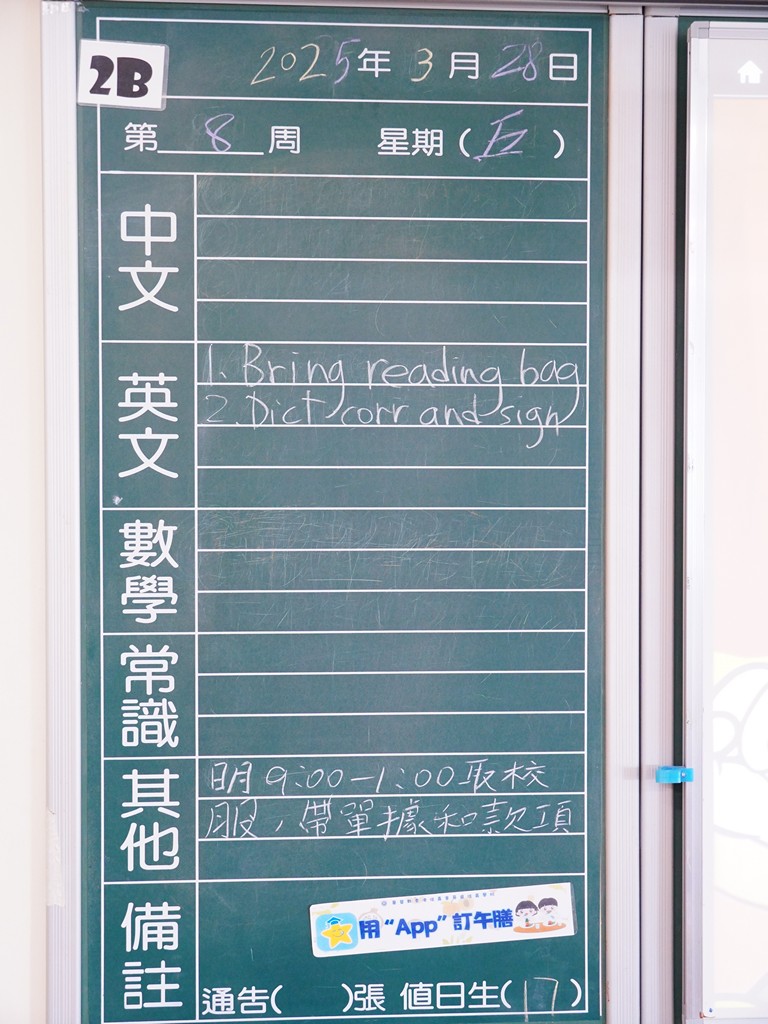 2B
2025年3月28日
第8周 星期(五)
中文
英文
1. Bring reading bag
2. Dict corr and sign
數學
常識
其他
明9:00-1:00取校
服，帶單據和款項
備註
用“App”訂午膳
通告( )張 值日生(17)